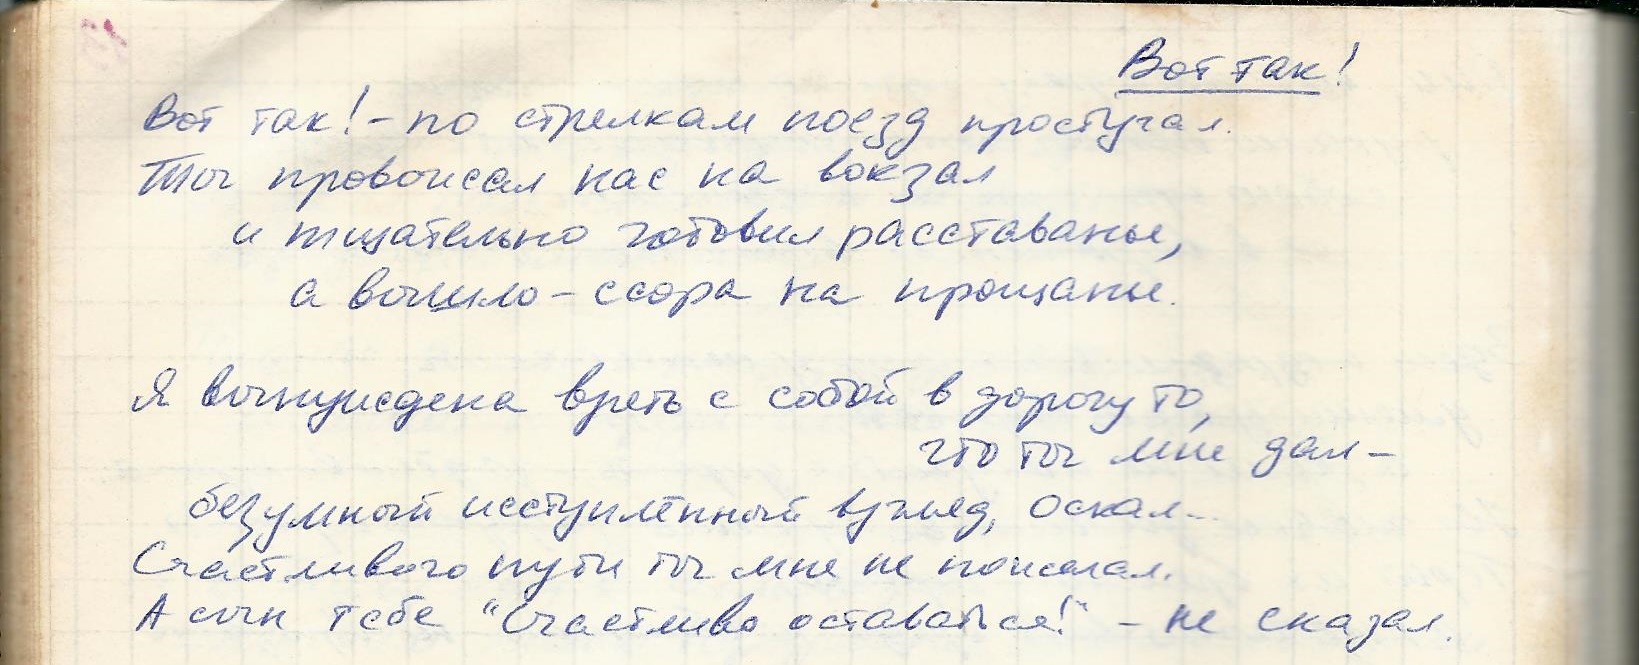 Вот так!
Вот так! – по стрелкам поезд простучал.
Ты провожал нас на вокзал
и тщательно готовил расставанье,
а вышло – ссора на прощанье.
Я вынуждена вреть с собой в дорогу то,
что ты мне дал –
безумный исступлённый взгляд, оскал...
Счастливого пути ты мне не пожелал.
А сын тебе "Счастливо оставаться!" – не сказал.